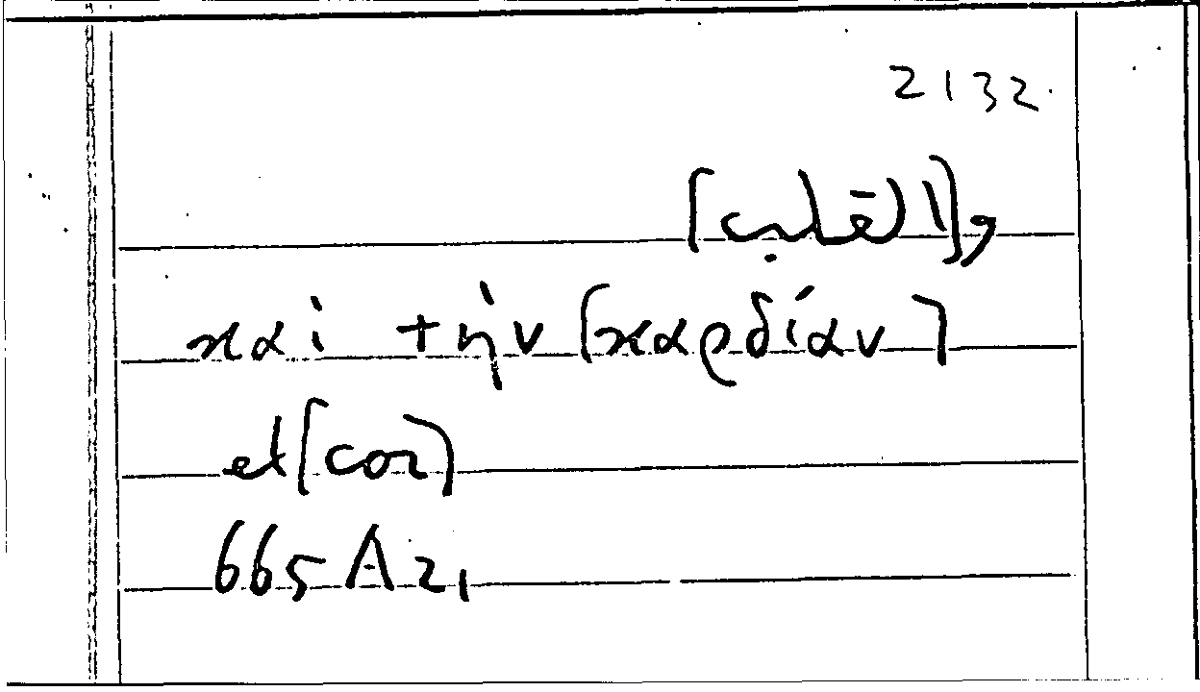 2132.
καὶ τὴν [καρδίαν]
et [cor]
665A21